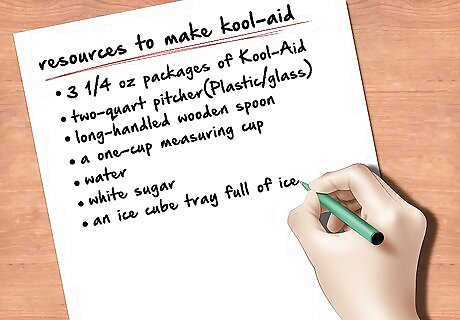 resources to make kool-aid
• 3 1/4 oz packages of Kool-Aid
• two-quart pitcher(Plastic/glass)
• long-handled wooden spoon
• a one-cup measuring cup
• water
• white sugar
• an ice cube tray full of ice